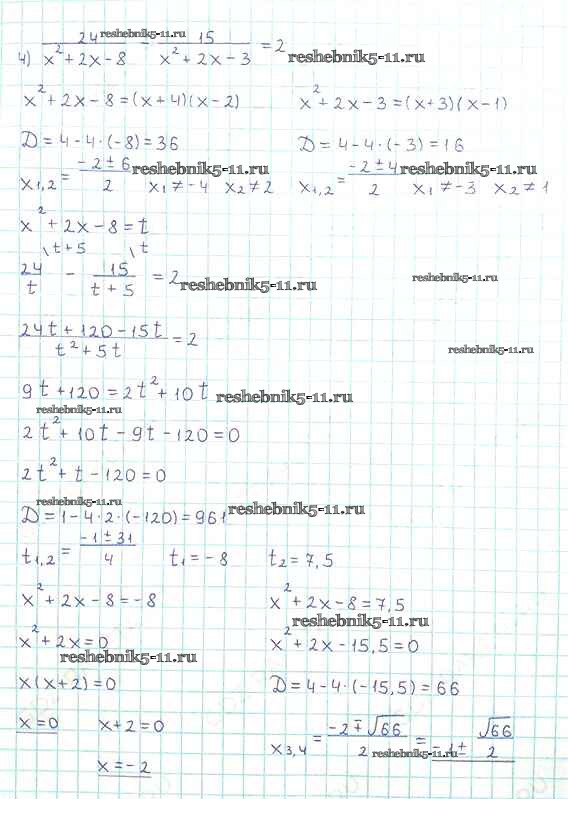 4) 24/(x²+2x-8) - 15/(x²+2x-3) = 2 reshebnik5-11.ru reshebnik5-11.ru
x²+2x-8=(x+4)(x-2) x²+2x-3=(x+3)(x-1)
D=4-4·(-8)=36 D=4-4·(-3)=16
x1,2 = (-2±6)/2 x1≠-4 x2≠2 x1,2 = (-2±4)/2 x1≠-3 x2≠1
reshebnik5-11.ru reshebnik5-11.ru
x²+2x-8=t
\t+5 \t
24/t - 15/(t+5) = 2 reshebnik5-11.ru reshebnik5-11.ru
(24t+120-15t)/(t²+5t) = 2 reshebnik5-11.ru
9t+120=2t²+10t reshebnik5-11.ru
reshebnik5-11.ru
2t²+10t-9t-120=0
2t²+t-120=0
reshebnik5-11.ru
D=1-4·2·(-120)=961 reshebnik5-11.ru
t1,2 = (-1±31)/4 t1=-8 t2=7,5
x²+2x-8=-8 x²+2x-8=7,5
reshebnik5-11.ru
x²+2x=0 x²+2x-15,5=0
reshebnik5-11.ru
x(x+2)=0 D=4-4·(-15,5)=66
x=0 x+2=0 x3,4 = (-2∓√66)/2 = -1±√66/2
reshebnik5-11.ru
x=-2